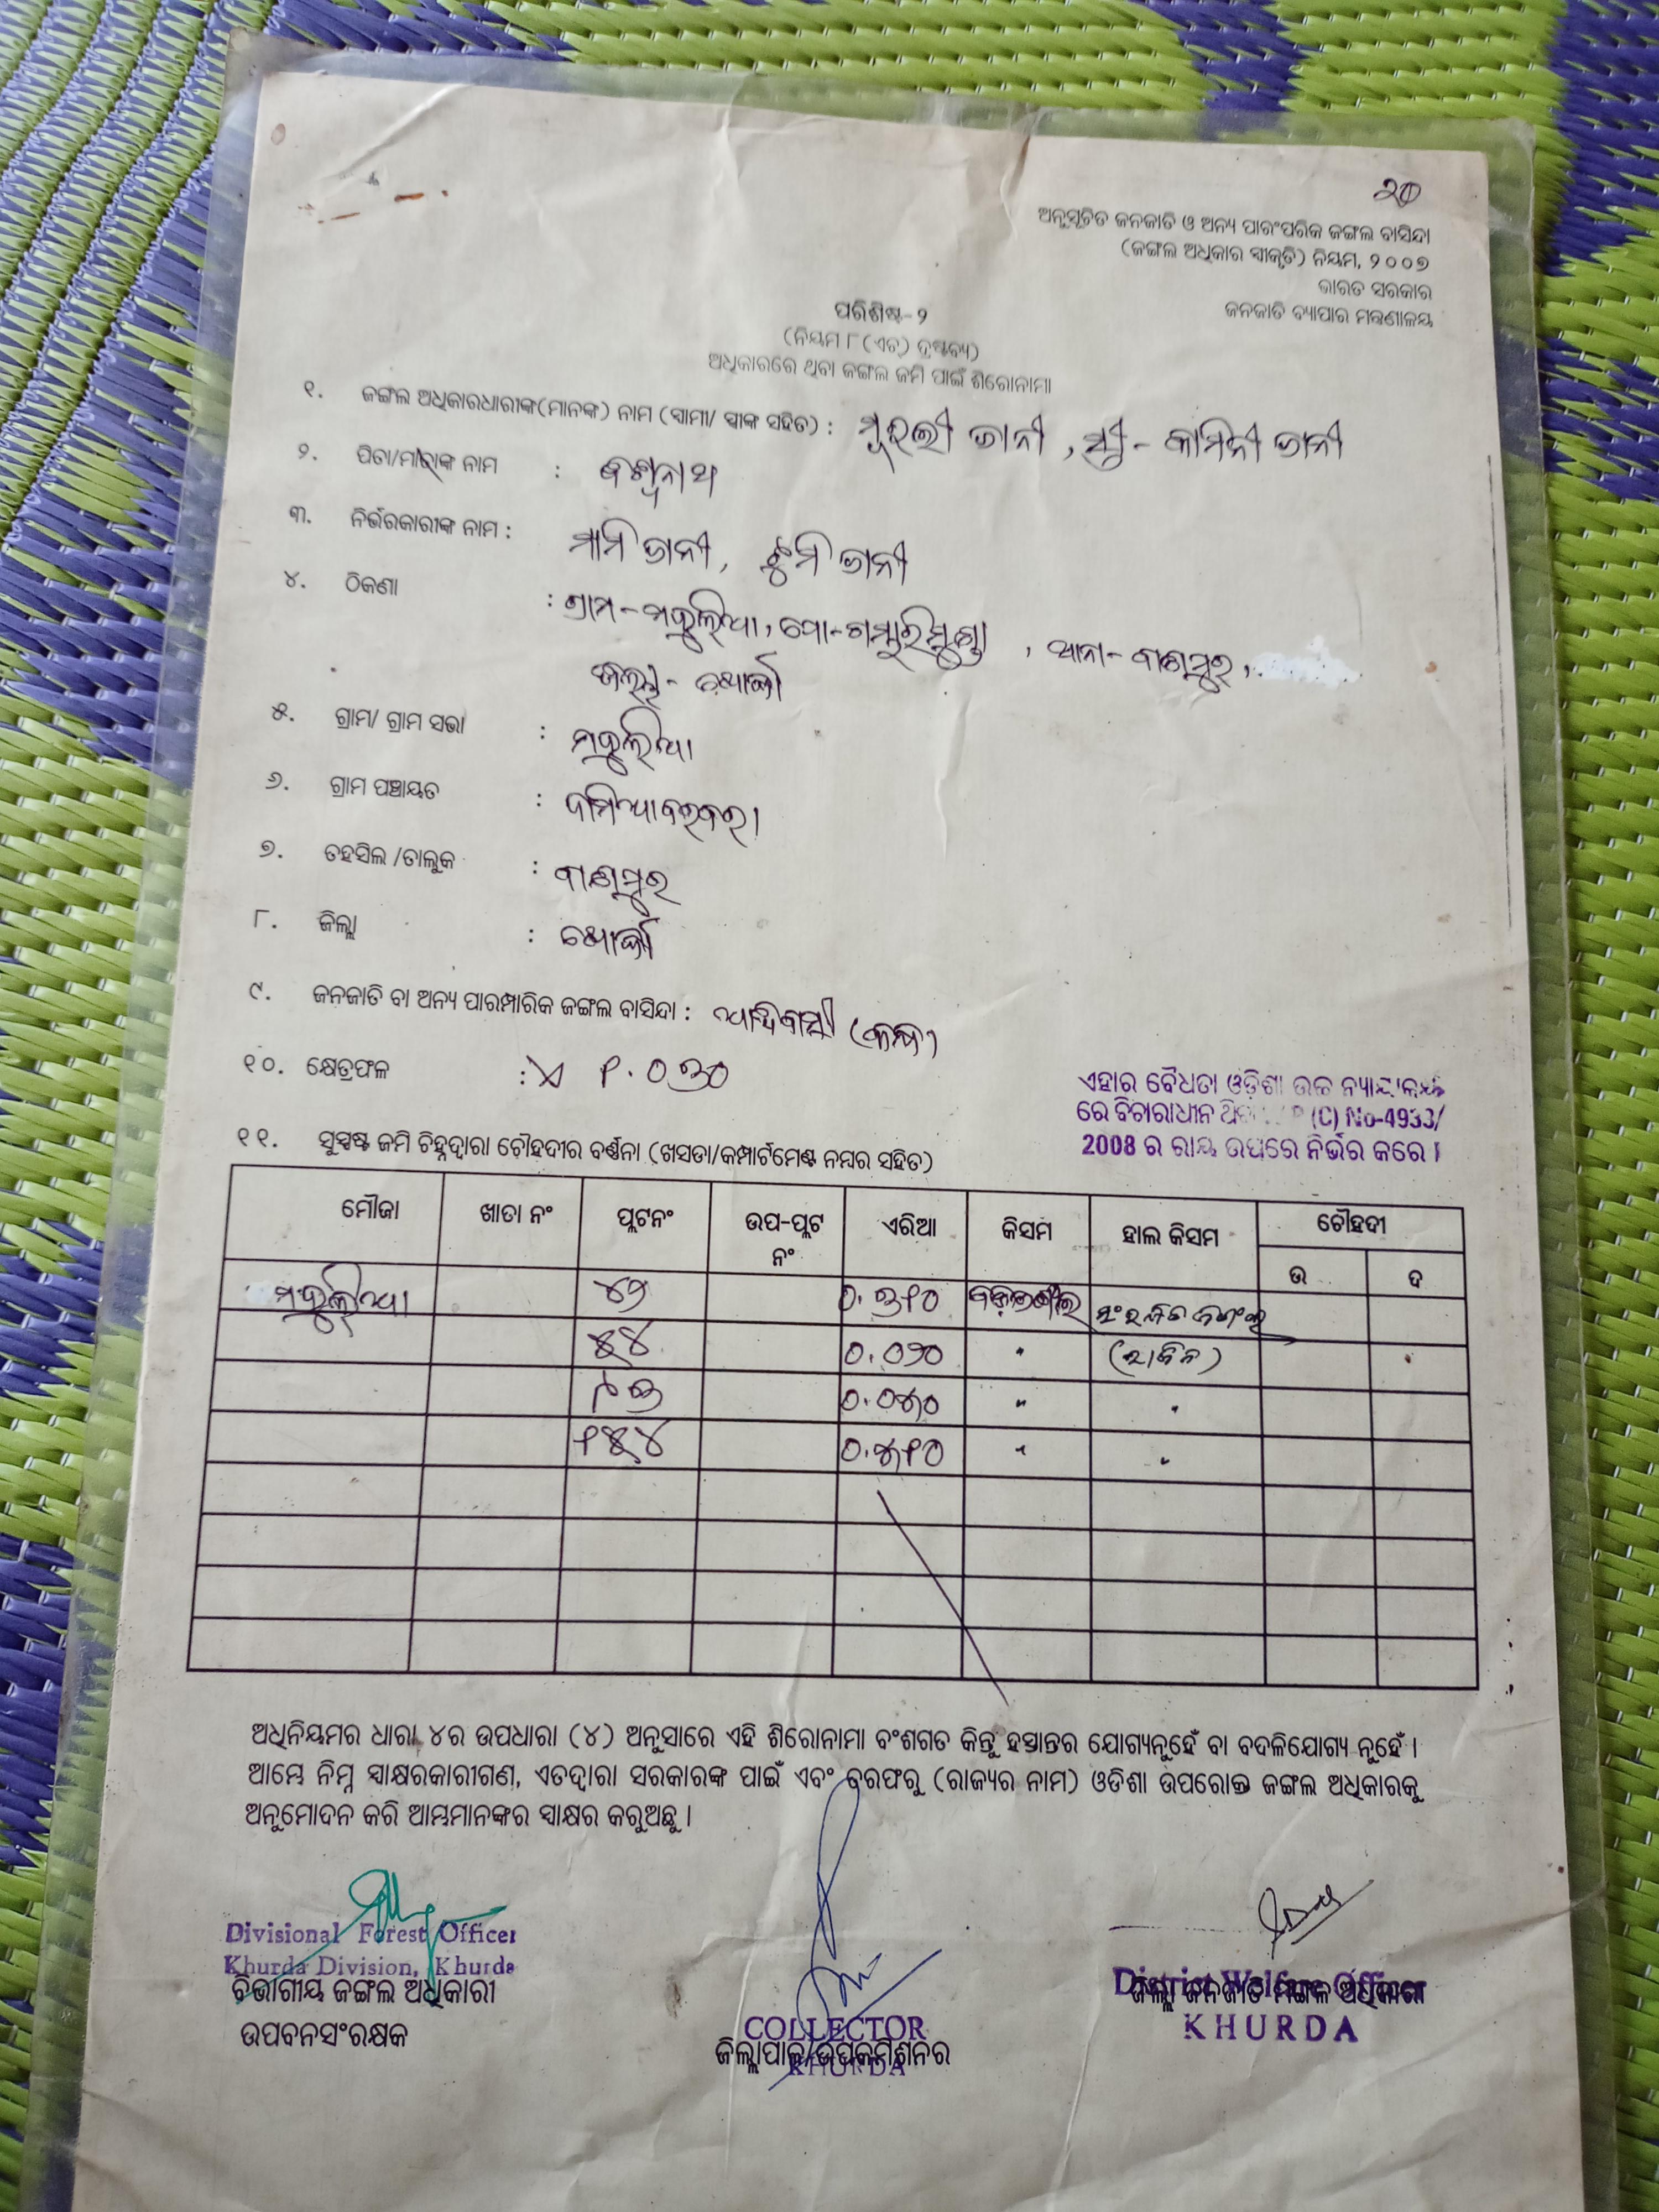 ୨୦
ଅନୁସୂଚିତ ଜନଜାତି ଓ ଅନ୍ୟ ପାରଂପରିକ ଜଙ୍ଗଲ ବାସିନ୍ଦା
(ଜଙ୍ଗଲ ଅଧିକାର ସ୍ୱୀକୃତି) ନିୟମ, ୨୦୦୭
ଭାରତ ସରକାର
ଜନଜାତି ବ୍ୟାପାର ମନ୍ତ୍ରଣାଳୟ
ପରିଶିଷ୍ଟ-୨
(ନିୟମ ୮(ଏଚ୍) ଦ୍ରଷ୍ଟବ୍ୟ)
ଅଧିକାରରେ ଥିବା ଜଙ୍ଗଲ ଜମି ପାଇଁ ଶିରୋନାମା
୧. ଜଙ୍ଗଲ ଅଧିକାରଧାରୀଙ୍କ(ମାନଙ୍କ) ନାମ (ସ୍ୱାମୀ/ ସ୍ତ୍ରୀଙ୍କ ସହିତ) : ମୂରଲୀ ଭାନୀ , ସ୍ତ୍ରୀ - କାମିନୀ ଭାନୀ
୨. ପିତା/ମାତାଙ୍କ ନାମ :
୩. ନିର୍ଭରକାରୀଙ୍କ ନାମ : ମାମି ଭାନୀ, ଟୁମି ଭାନୀ
୪. ଠିକଣା : ଗ୍ରାମ-ମଜୁଲିଆ, ପୋ-ଗମ୍ଭାରିମୁଣ୍ଡା , ଥାନା- ବାଣପୁର,
ଜିଲ୍ଲା - ଖୋର୍ଦ୍ଧା
୫. ଗ୍ରାମ/ ଗ୍ରାମ ସଭା : ମଜୁଲିଆ
୬. ଗ୍ରାମ ପଞ୍ଚାୟତ :
୭. ତହସିଲ /ତାଲୁକ : ବାଣପୁର
୮. ଜିଲ୍ଲା : ଖୋର୍ଦ୍ଧା
୯. ଜନଜାତି ବା ଅନ୍ୟ ପାରମ୍ପାରିକ ଜଙ୍ଗଲ ବାସିନ୍ଦା : ଆଦିବାସୀ (କନ୍ଧ)
୧୦. କ୍ଷେତ୍ରଫଳ : ଏ ୧.୦୩୦
ଏହାର ବୈଧତା ଓଡ଼ିଶା ଉଚ୍ଚ ନ୍ୟାୟାଳୟ
ରେ ବିଚାରାଧୀନ ଥିବା (C) No-4933/
2008 ର ରାୟ ଉପରେ ନିର୍ଭର କରେ ।
୧୧. ସୁସ୍ପଷ୍ଟ ଜମି ଚିହ୍ନଦ୍ୱାରା ଚୌହଦୀର ବର୍ଣ୍ଣନା (ଖସଡା/କମ୍ପାର୍ଟମେଣ୍ଟ ନମ୍ବର ସହିତ)
ମୌଜା ଖାତା ନଂ ପ୍ଲଟନଂ ଉପ-ପ୍ଲଟ ନଂ ଏରିଆ କିସମ ହାଲ କିସମ ଚୌହଦୀ
ଉ ଦ
ମଜୁଲିଆ ୪୨ ୦.୩୧୦ ସଂରକ୍ଷିତ ଜଙ୍ଗଲ
୫୪ ୦.୦୨୦ "
୯୩ ୦.୦୯୦ " "
୧୫୪ ୦.୬୧୦ " "
ଅଧିନିୟମର ଧାରା ୪ର ଉପଧାରା (୪) ଅନୁସାରେ ଏହି ଶିରୋନାମା ବଂଶଗତ କିନ୍ତୁ ହସ୍ତାନ୍ତର ଯୋଗ୍ୟନୁହେଁ ବା ବଦଳିଯୋଗ୍ୟ ନୁହେଁ ।
ଆମ୍ଭେ ନିମ୍ନ ସ୍ୱାକ୍ଷରକାରୀଗଣ, ଏତଦ୍ୱାରା ସରକାରଙ୍କ ପାଇଁ ଏବଂ ତରଫରୁ (ରାଜ୍ୟର ନାମ) ଓଡିଶା ଉପରୋକ୍ତ ଜଙ୍ଗଲ ଅଧିକାରକୁ
ଅନୁମୋଦନ କରି ଆମ୍ଭମାନଙ୍କର ସ୍ୱାକ୍ଷର କରୁଅଛୁ ।
Divisional Forest Officer
Khurda Division, Khurda
ବିଭାଗୀୟ ଜଙ୍ଗଲ ଅଧିକାରୀ
ଉପବନସଂରକ୍ଷକ
COLLECTOR
ଜିଲ୍ଲାପାଳ/ଉପକମିଶନର
KHURDA
District Welfare Officer
ଜିଲ୍ଲା ଜନଜାତି ମଙ୍ଗଳ ଅଧିକାରୀ
KHURDA